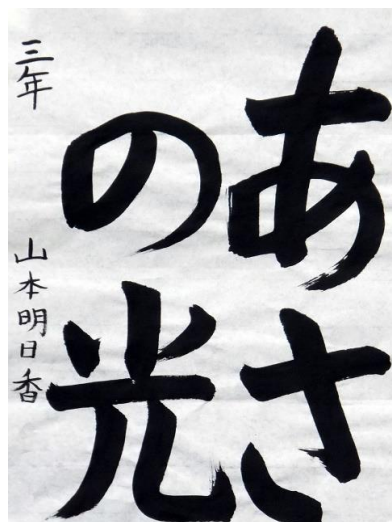 あさ
の光
三年 山本明日香